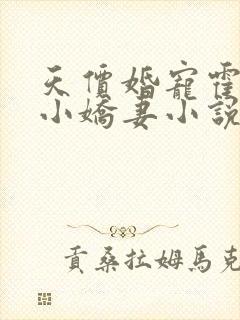 天價婚寵霍
小嬌妻小說
貢桑拉姆馬克